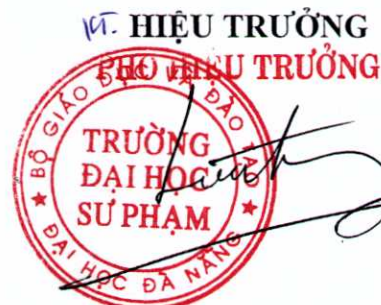 KT. HIỆU TRƯỞNG
PHÓ HIỆU TRƯỞNG
BỘ GIÁO DỤC VÀ ĐÀO TẠO
TRƯỜNG
ĐẠI HỌC
SƯ PHẠM
★ ĐẠI HỌC ĐÀ NẴNG ★